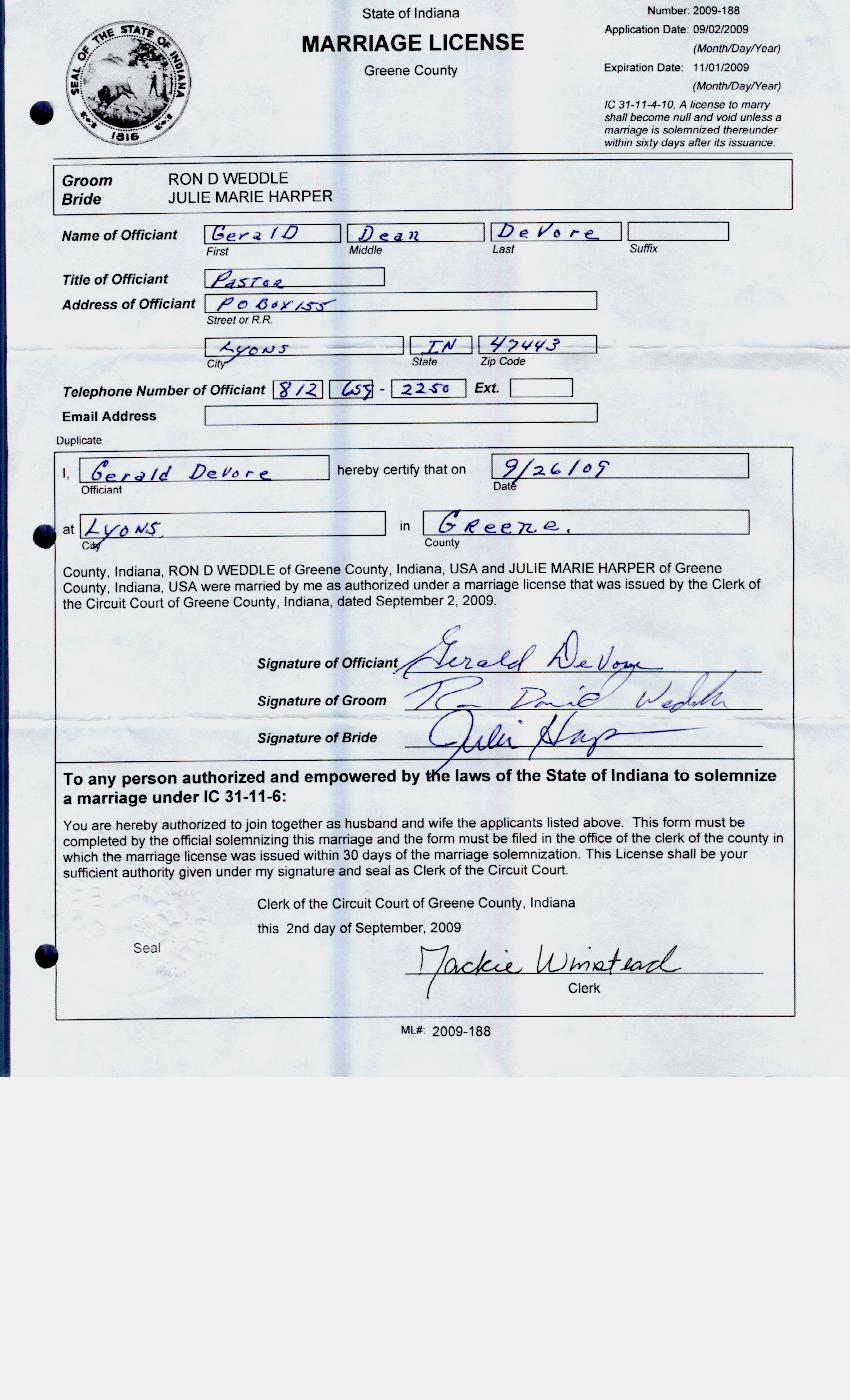 State of Indiana
MARRIAGE LICENSE
Greene County
Number: 2009-188
Application Date: 09/02/2009
(Month/Day/Year)
Expiration Date: 11/01/2009
(Month/Day/Year)
IC 31-11-4-10, A license to marry
shall become null and void unless a
marriage is solemnized thereunder
within sixty days after its issuance.
SEAL OF THE STATE OF INDIANA
1816
Groom RON D WEDDLE
Bride JULIE MARIE HARPER
Name of Officiant GeralD Dean DeVore
First Middle Last Suffix
Title of Officiant Pastor
Address of Officiant PO Box 155
Street or R.R.
Lyons IN 47443
City State Zip Code
Telephone Number of Officiant 812 659 - 2250 Ext.
Email Address
Duplicate
I, Gerald DeVore hereby certify that on 9/26/09
Officiant Date
at Lyons in Greene.
City County
County, Indiana, RON D WEDDLE of Greene County, Indiana, USA and JULIE MARIE HARPER of Greene
County, Indiana, USA were married by me as authorized under a marriage license that was issued by the Clerk of
the Circuit Court of Greene County, Indiana, dated September 2, 2009.
Signature of Officiant Gerald DeVore
Signature of Groom Ron David Weddle
Signature of Bride Julie Harper
To any person authorized and empowered by the laws of the State of Indiana to solemnize
a marriage under IC 31-11-6:
You are hereby authorized to join together as husband and wife the applicants listed above. This form must be
completed by the official solemnizing this marriage and the form must be filed in the office of the clerk of the county in
which the marriage license was issued within 30 days of the marriage solemnization. This License shall be your
sufficient authority given under my signature and seal as Clerk of the Circuit Court.
Clerk of the Circuit Court of Greene County, Indiana
this 2nd day of September, 2009
Seal
Mackie Winstead
Clerk
ML#: 2009-188